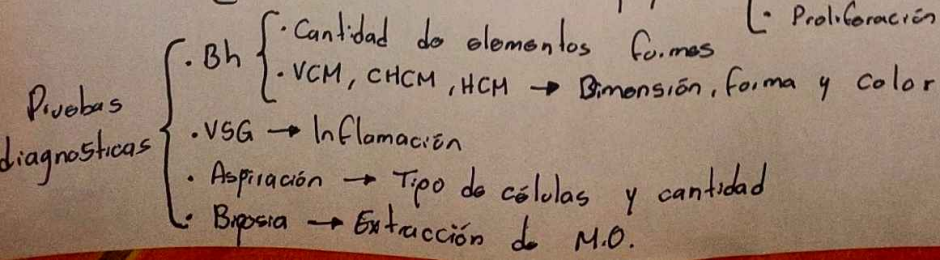 · Proliferación
Pruebas diagnosticas
· Bh
· Cantidad de elementos formes
· VCM, CHCM, HCM → Dimensión, forma y color
· VSG → Inflamación
· Aspiración → Tipo de células y cantidad
· Biopsia → Extracción de M.O.